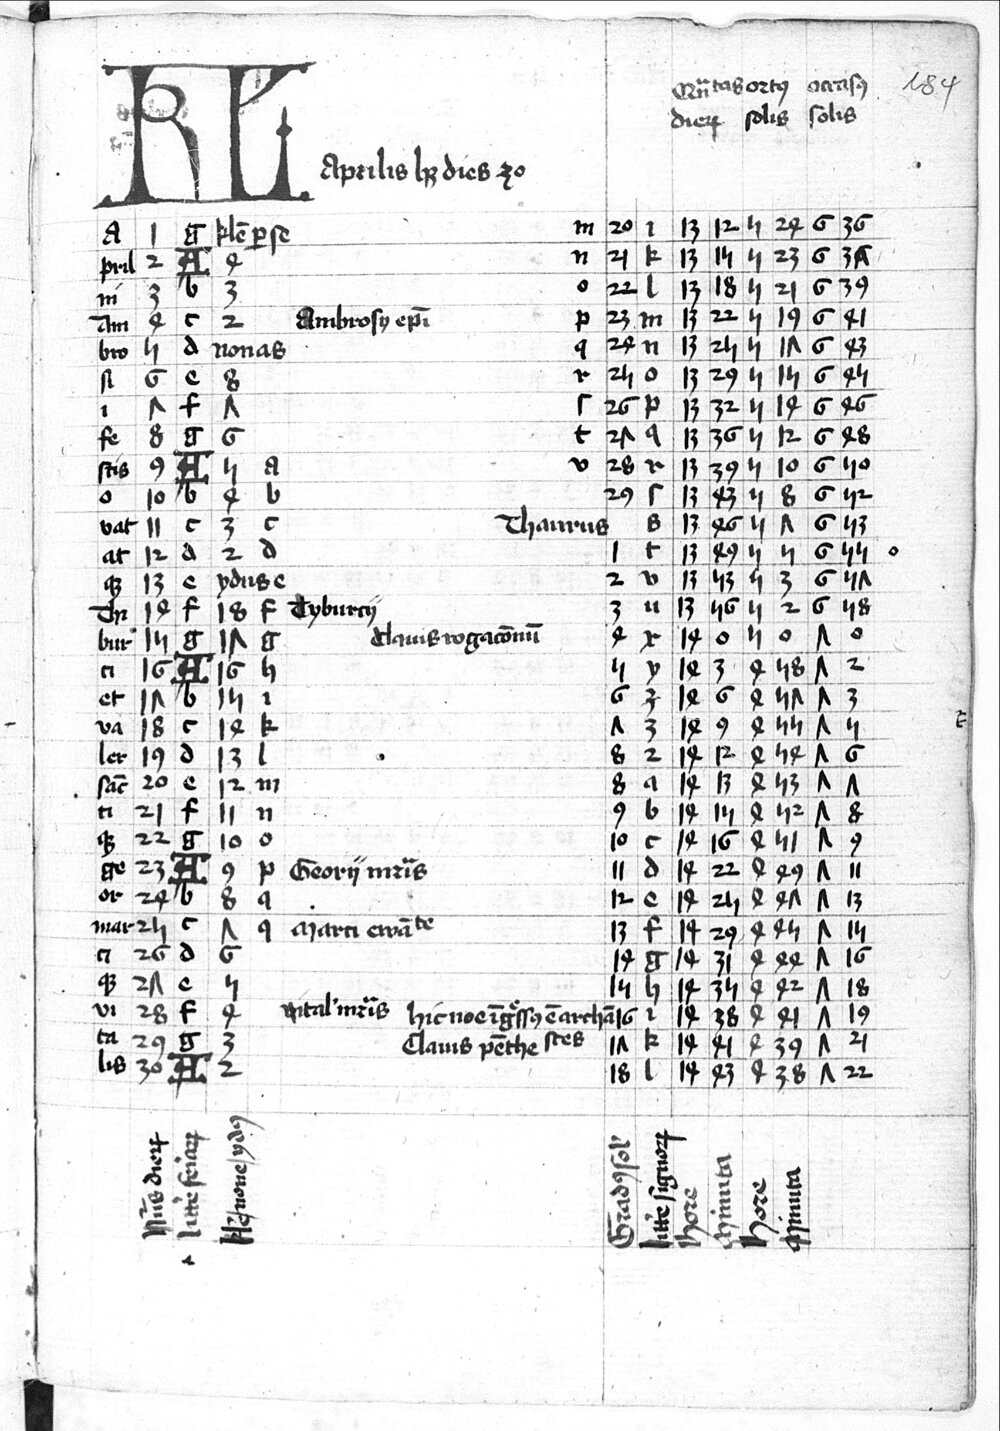 184
Qn̄tas ortꝰ occasꝰ
dieꝝ solis solis
KL Aprilis hꝫ dies 30
A 1 g kl̄e ꝑ se m 20 i 13 12 5 24 6 36
pril 2 A 4 n 21 k 13 15 5 23 6 37
in 3 b 3 o 22 l 13 18 5 21 6 39
Am 4 c 2 Ambrosy ep̄i p 23 m 13 22 5 19 6 41
bro 5 d nonas q 24 n 13 25 5 17 6 43
si 6 e 8 r 25 o 13 29 5 15 6 45
i 7 f 7 ſ 26 p 13 32 5 14 6 46
fe 8 g 6 t 27 q 13 36 5 12 6 48
stis 9 A 5 a v 28 r 13 39 5 10 6 50
o 10 b 4 b 29 ſ 13 43 5 8 6 52
vat 11 c 3 c Thaurus s 13 46 5 7 6 53
at 12 d 2 d 1 t 13 49 5 5 6 55
qꝫ 13 e ydus e 2 v 13 53 5 3 6 57
Ti 14 f 18 f Tyburcij 3 u 13 56 5 2 6 58
bur 15 g 17 g Clauis rogac̄onū 4 x 14 0 5 0 7 0
ci 16 A 16 h 5 y 14 3 4 58 7 2
et 17 b 15 i 6 z 14 6 4 57 7 3
va 18 c 14 k 7 3 14 9 4 55 7 5
ler 19 d 13 l 8 2 14 12 4 54 7 6
sāc 20 e 12 m 8 a 14 13 4 53 7 7
ti 21 f 11 n 9 b 14 15 4 52 7 8
qꝫ 22 g 10 o 10 c 14 16 4 51 7 9
ge 23 A 9 p Georij mr̄is 11 d 14 22 4 49 7 11
or 24 b 8 q 12 e 14 25 4 47 7 13
mar 25 c 7 q Marci ewāte 13 f 14 29 4 45 7 15
ci 26 d 6 14 g 14 31 4 44 7 16
qꝫ 27 e 5 15 h 14 35 4 42 7 18
vi 28 f 4 vital' mr̄is hic noe īgressꝰ ē archā 16 i 14 38 4 41 7 19
ta 29 g 3 Clauis pēthe stes 17 k 14 41 4 39 7 21
lis 30 A 2 18 l 14 43 4 38 7 22
Nūs dieꝝ
litte feriaꝝ
Kl̄e/none/ydꝰ
Gradꝰ sol'
litte signoꝝ
hore
minuta
hore
minuta